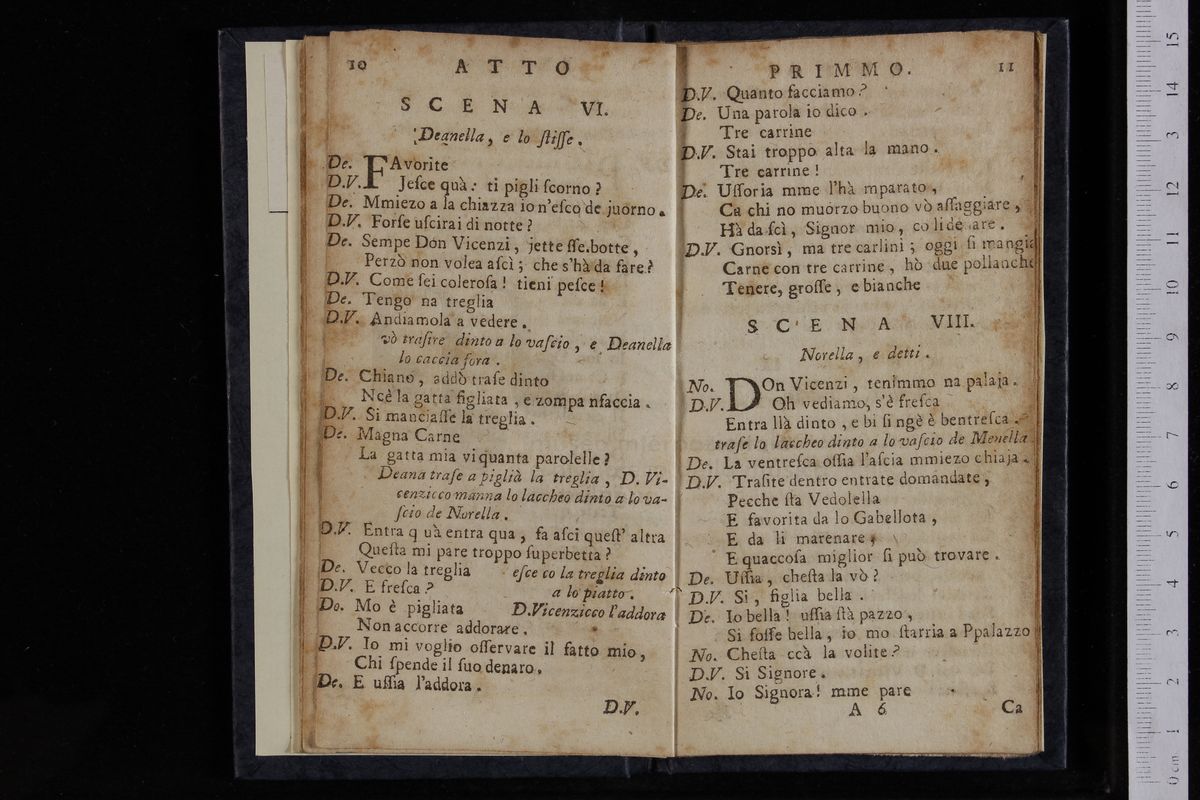 10 ATTO
SCENA VI.
Deanella, e lo ſtiſſe.
De. FAvorite
D.V. Jeſce quà: ti pigli ſcorno?
De. Mmiezo a la chiazza io n'eſco de juorno.
D.V. Forſe uſcirai di notte?
De. Sempe Don Vicenzi, jette ſſe botte,
Perzò non volea aſcì; che s'hà da fare?
D.V. Come ſei coleroſa! tieni peſce!
De. Tengo na treglia
D.V. Andiamola a vedere.
vò traſire dinto a lo vaſcio, e Deanella
lo caccia fora.
De. Chiano, addò traſe dinto
Ncè la gatta figliata, e zompa nfaccia.
D.V. Si manciaſſe la treglia.
De. Magna Carne
La gatta mia vi quanta parolelle?
Deana traſe a piglià la treglia, D. Vi-
cenzicco manna lo laccheo dinto a lo va-
ſcio de Norella.
D.V. Entra q uà entra qua, fa aſci queſt' altra
Queſta mi pare troppo ſuperbetta?
De. Vecco la treglia eſce co la treglia dinto
D.V. E freſca? a lo piatto.
Do. Mo è pigliata D.Vicenzicco l'addora
Non accorre addorare.
D.V. Io mi voglio oſſervare il fatto mio,
Chi ſpende il ſuo denaro.
De. E uſſia l'addora.
D.V.
PRIMMO. 11
D.V. Quanto facciamo?
De. Una parola io dico.
Tre carrine
D.V. Stai troppo alta la mano.
Tre carrine!
De. Uſſoria mme l'hà mparato,
Ca chi no muorzo buono vò aſſaggiare,
Hà da ſcì, Signor mio, co li
D.V. Gnorsì, ma tre carlini; oggi ſi mangia
Carne con tre carrine, hò due pollanche
Tenere, groſſe, e bianche
SCENA VIII.
Norella, e detti.
No. DOn Vicenzi, tenimmo na palaja.
D.V. Oh vediamo, s'è freſca
Entra llà dinto, e bi ſi ngè è bentreſca.
traſe lo laccheo dinto a lo vaſcio de Menella.
De. La ventreſca oſſia l'aſcia mmiezo chiaja.
D.V. Traſite dentro entrate domandate,
Pecche ſta Vedolella
E favorita da lo Gabellota,
E da li marenare,
E quaccoſa miglior ſi può trovare.
De. Uſſia, cheſta la vò?
D.V. Si, figlia bella.
De. Io bella! uſſia ſtà pazzo,
Si foſſe bella, io mo ſtarria a Ppalazzo
No. Cheſta ccà la volite?
D.V. Si Signore.
No. Io Signora! mme pare
A 6 Ca